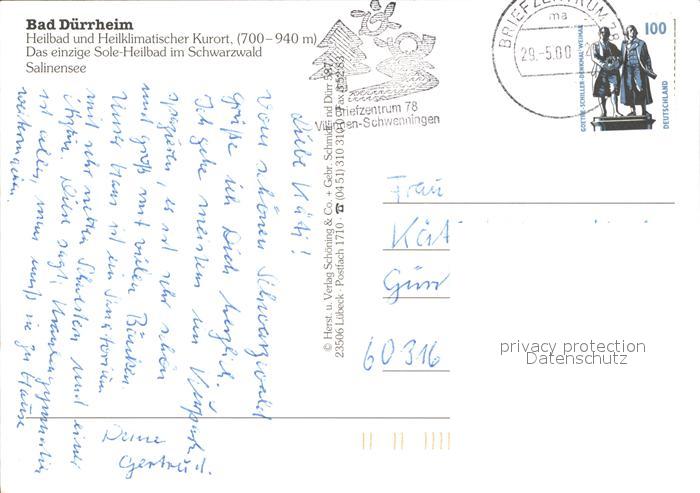 Bad Dürrheim
Heilbad und Heilklimatischer Kurort, (700–940 m)
Das einzige Sole-Heilbad im Schwarzwald
Salinensee
Briefzentrum 78
Villingen-Schwenningen
BRIEFZENTRUM 78
ma
29.-5.00
100
GOETHE-SCHILLER-DENKMAL WEIMAR
DEUTSCHLAND
© Herst. u. Verlag Schöning & Co. + Gebr. Schmidt
23506 Lübeck · Postfach 1710 · ☎ (04 51) 310 310
Liebe Käti!
Vom schönen Schwarzwald
grüße ich Dich herzlich.
Ich gehe meistens im Kurpark
spazieren, es ist sehr schön
und groß mit vielen Bänken.
Unser Haus ist ein Sanatorium
mit sehr netten Schwestern und einer
Ärztin. Diese sagt, Krankengymnastik
ist alles, man muß sie zu Hause
weitermachen.
Deine
Gertrud.
Frau
Kät
Gün
60316
privacy protection
Datenschutz